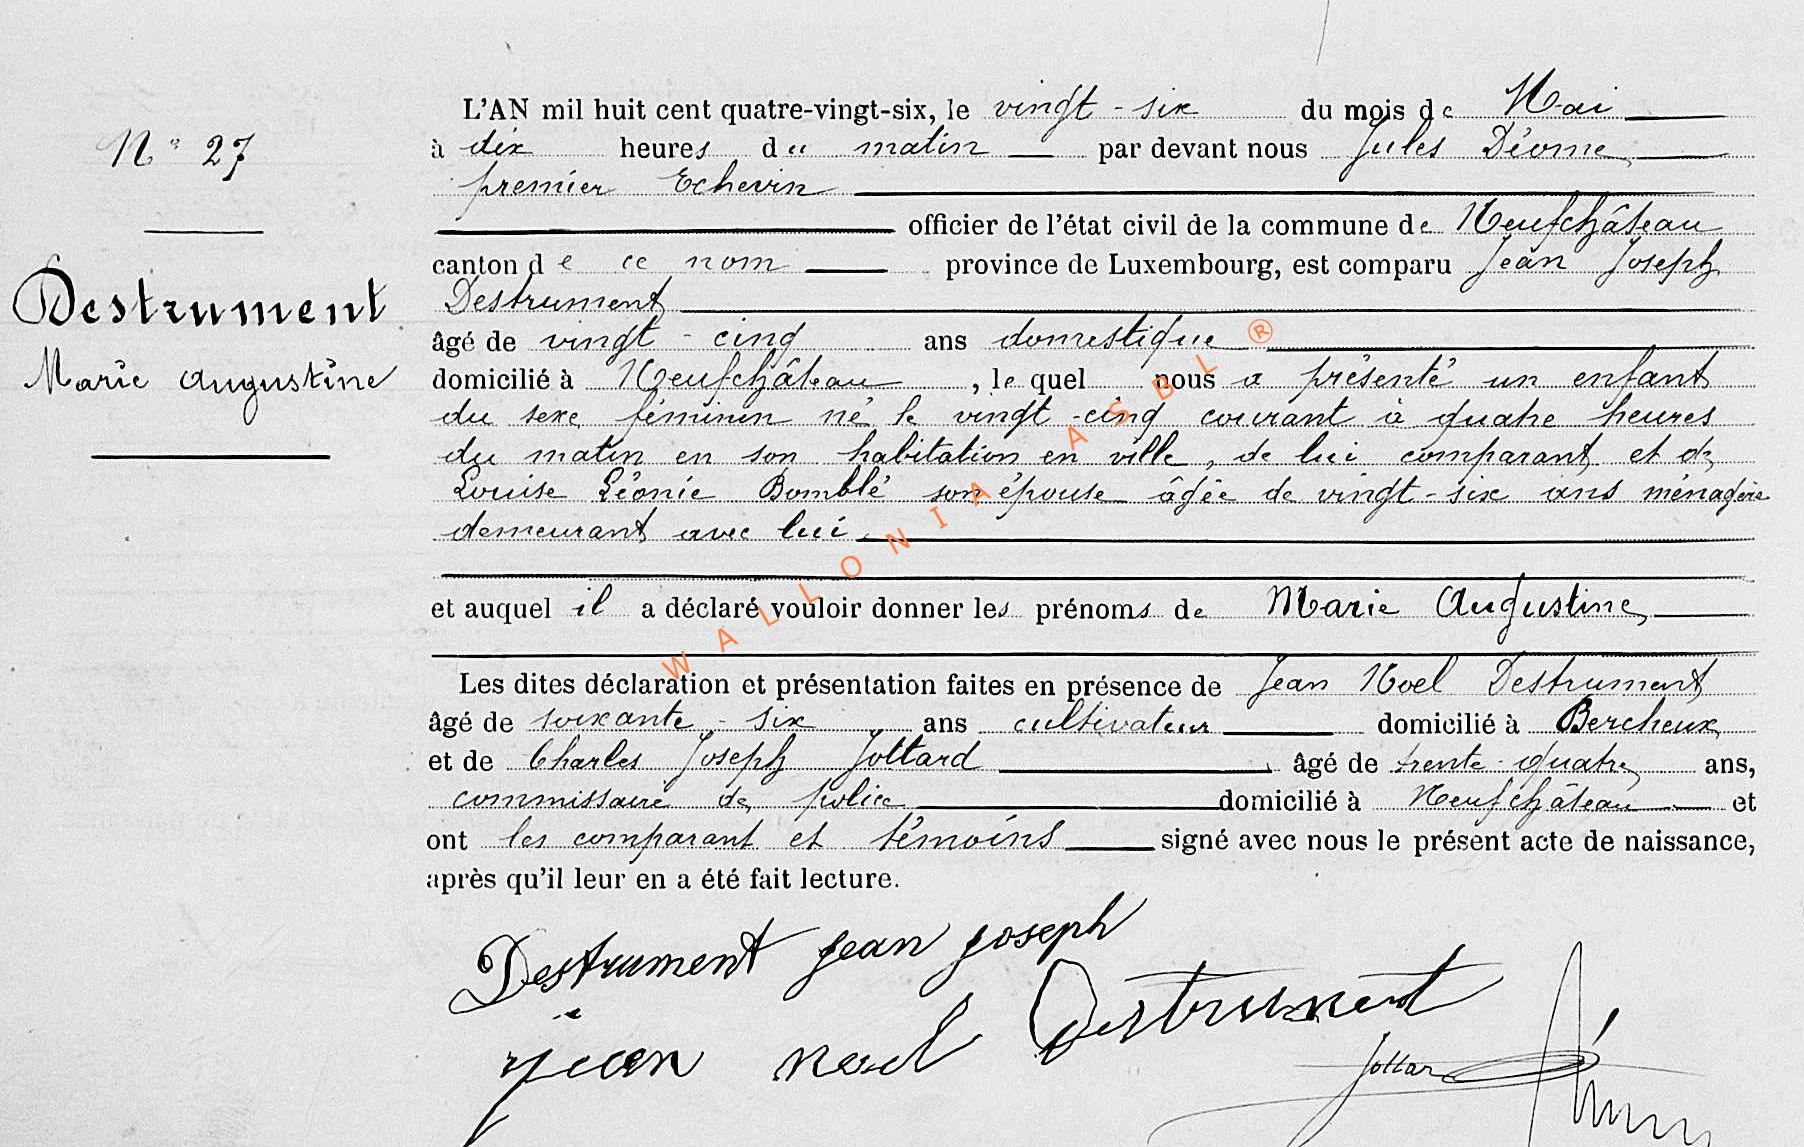 N° 27
Destrument
Marie Augustine
L'AN mil huit cent quatre-vingt-six, le vingt-six du mois de Mai
à dix heures du matin par devant nous Jules Déome,
premier Echevin
officier de l'état civil de la commune de Neufchâteau
canton de ce nom province de Luxembourg, est comparu Jean Joseph
Destrument
âgé de vingt-cinq ans domestique
domicilié à Neufchâteau, lequel nous a présenté un enfant
du sexe féminin né le vingt-cinq courant à quatre heures
du matin en son habitation en ville, de lui comparant et de
Louise Léonie Bomblé son épouse âgée de vingt-six ans ménagère
demeurant avec lui,
et auquel il a déclaré vouloir donner les prénoms de Marie Augustine,
Les dites déclaration et présentation faites en présence de Jean Noel Destrument
âgé de soixante-six ans cultivateur domicilié à Bercheux
et de Charles Joseph Jottard âgé de trente-quatre ans,
commissaire de police domicilié à Neufchâteau et
ont les comparant et témoins signé avec nous le présent acte de naissance,
après qu'il leur en a été fait lecture.
Destrument jean joseph
jean noel Destrument
Jottar
WALLONIA ASBL ®